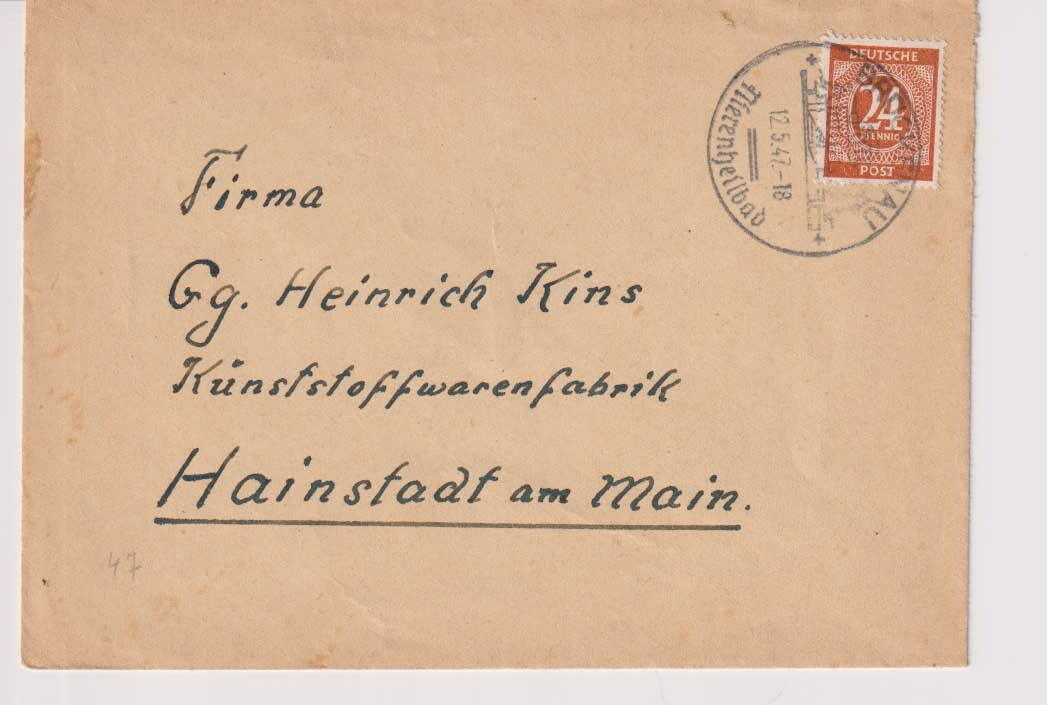 DEUTSCHE
24
PFENNIG
POST
Nierenheilbad
12.5.47.-18
Firma
Gg. Heinrich Kins
Kunststoffwarenfabrik
Hainstadt am Main.
47